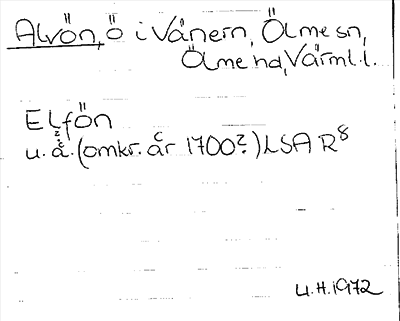 Alvön, ö i Vänern, Ölme sn,
Ölme hd, Värml. l.
Elfön
u. å. (omkr. år 1700?) LSA R8
U.H. 1972